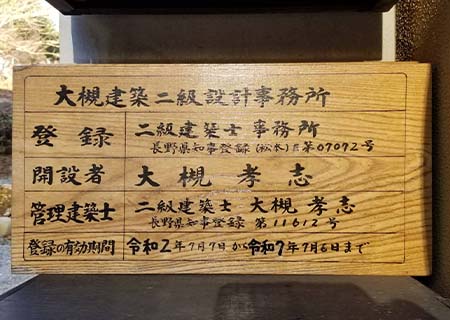 大槻建築二級設計事務所
登録 二級建築士事務所
長野県知事登録(松本)B第07092号
開設者 大槻孝志
管理建築士 二級建築士 大槻孝志
長野県知事登録 第11612号
登録の有効期間 令和2年7月7日から令和7年7月6日まで